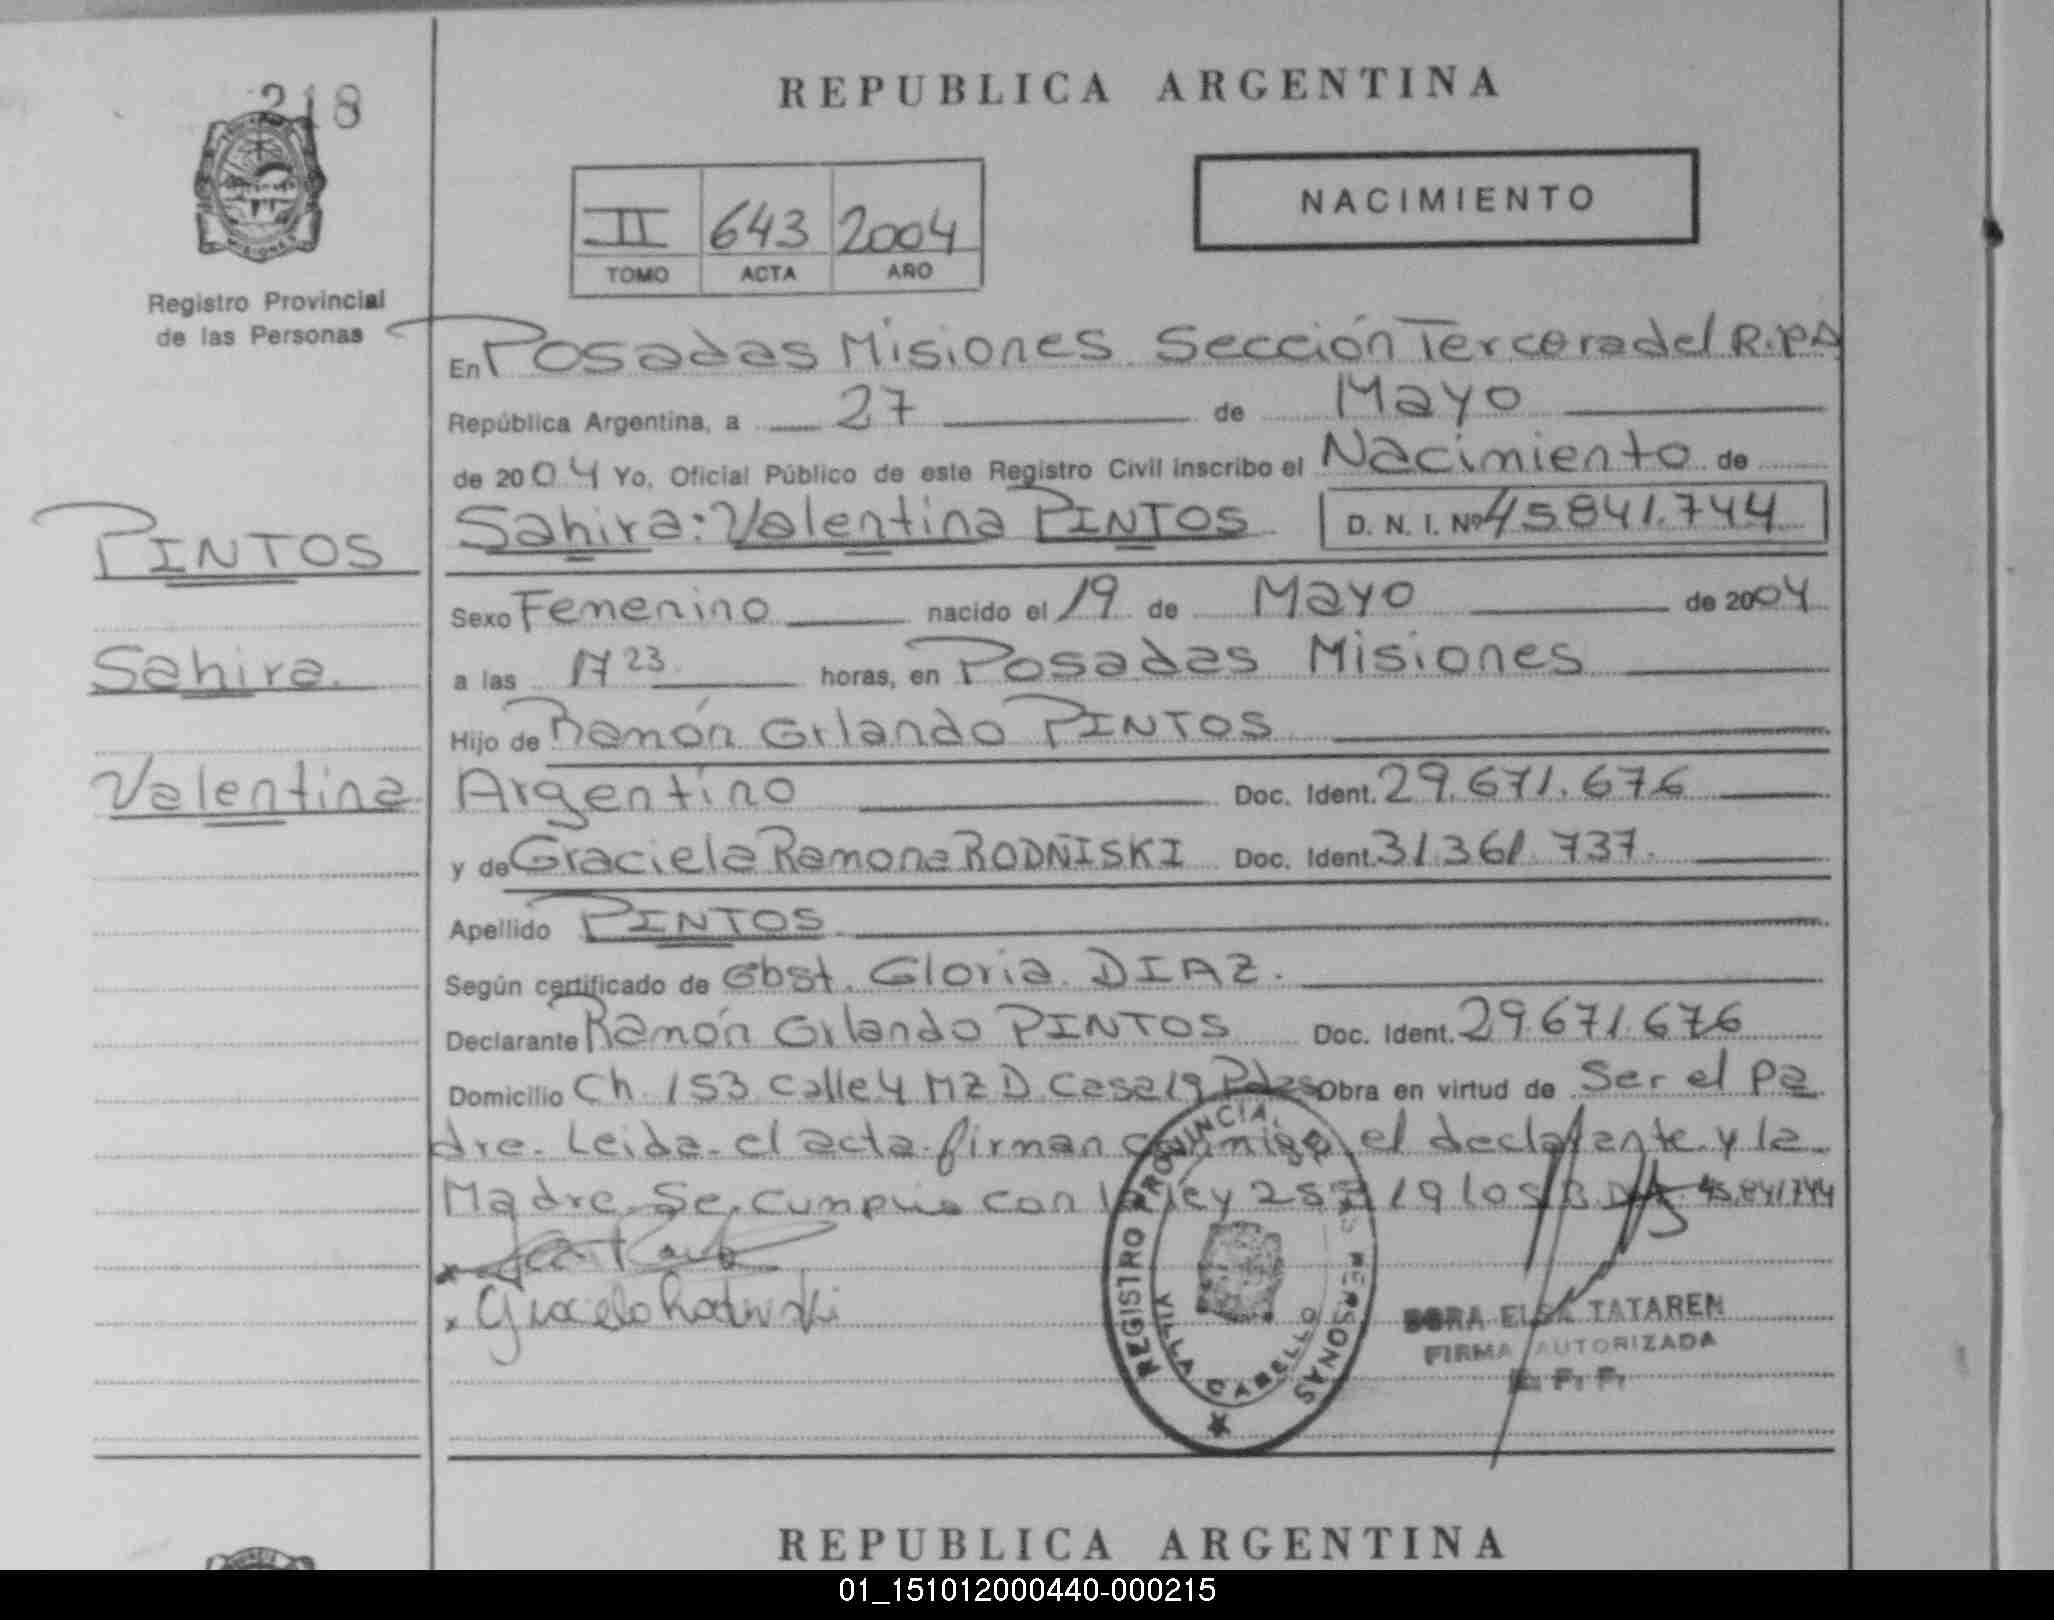 218
REPUBLICA ARGENTINA
NACIMIENTO
II 643 2004
TOMO ACTA AÑO
MISIONES
Registro Provincial
de las Personas
En Posadas Misiones Sección Tercera del R.P.
República Argentina, a 27 de Mayo
de 2004 Yo, Oficial Público de este Registro Civil inscribo el Nacimiento de
PINTOS
Sahira
Valentina
Sahira: Valentina PINTOS D. N. I. Nº 45841.744
Sexo Femenino nacido el 19 de Mayo de 2004
a las 17 23 horas, en Posadas Misiones
Hijo de Ramón Orlando PINTOS
Argentino Doc. Ident. 29.671.676
y de Graciela Ramona RODÑISKI Doc. Ident. 31361.737.
Apellido PINTOS
Según certificado de Obst. Gloria DIAZ.
Declarante Ramón Orlando PINTOS Doc. Ident. 29.671.676
Domicilio Ch. 153 Calle 4 MZ D Casa 19 Pdas Obra en virtud de Ser el Pa
dre. Leida el acta firman conmigo el declarante y la
Madre Se cumplio con la Ley 19 los 45.841.744
Graciela Rodniski
REGISTRO PROVINCIAL DE LAS PERSONAS
VILLA CABELLO
DORA ELSA TATAREN
FIRMA AUTORIZADA
REPUBLICA ARGENTINA
01_151012000440-000215